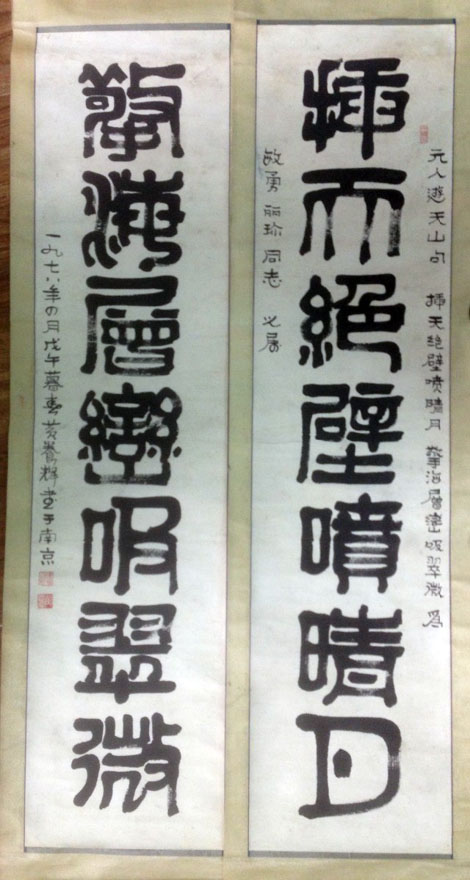 元人遊天山句 插天绝壁喷晴月 擎海層巒吸翠微 為
插天絕壁噴晴月
勇 丽珍 同志 之属
擎海層巒吸翠微
一九七八年四月戊午暮春黄養輝書于南京